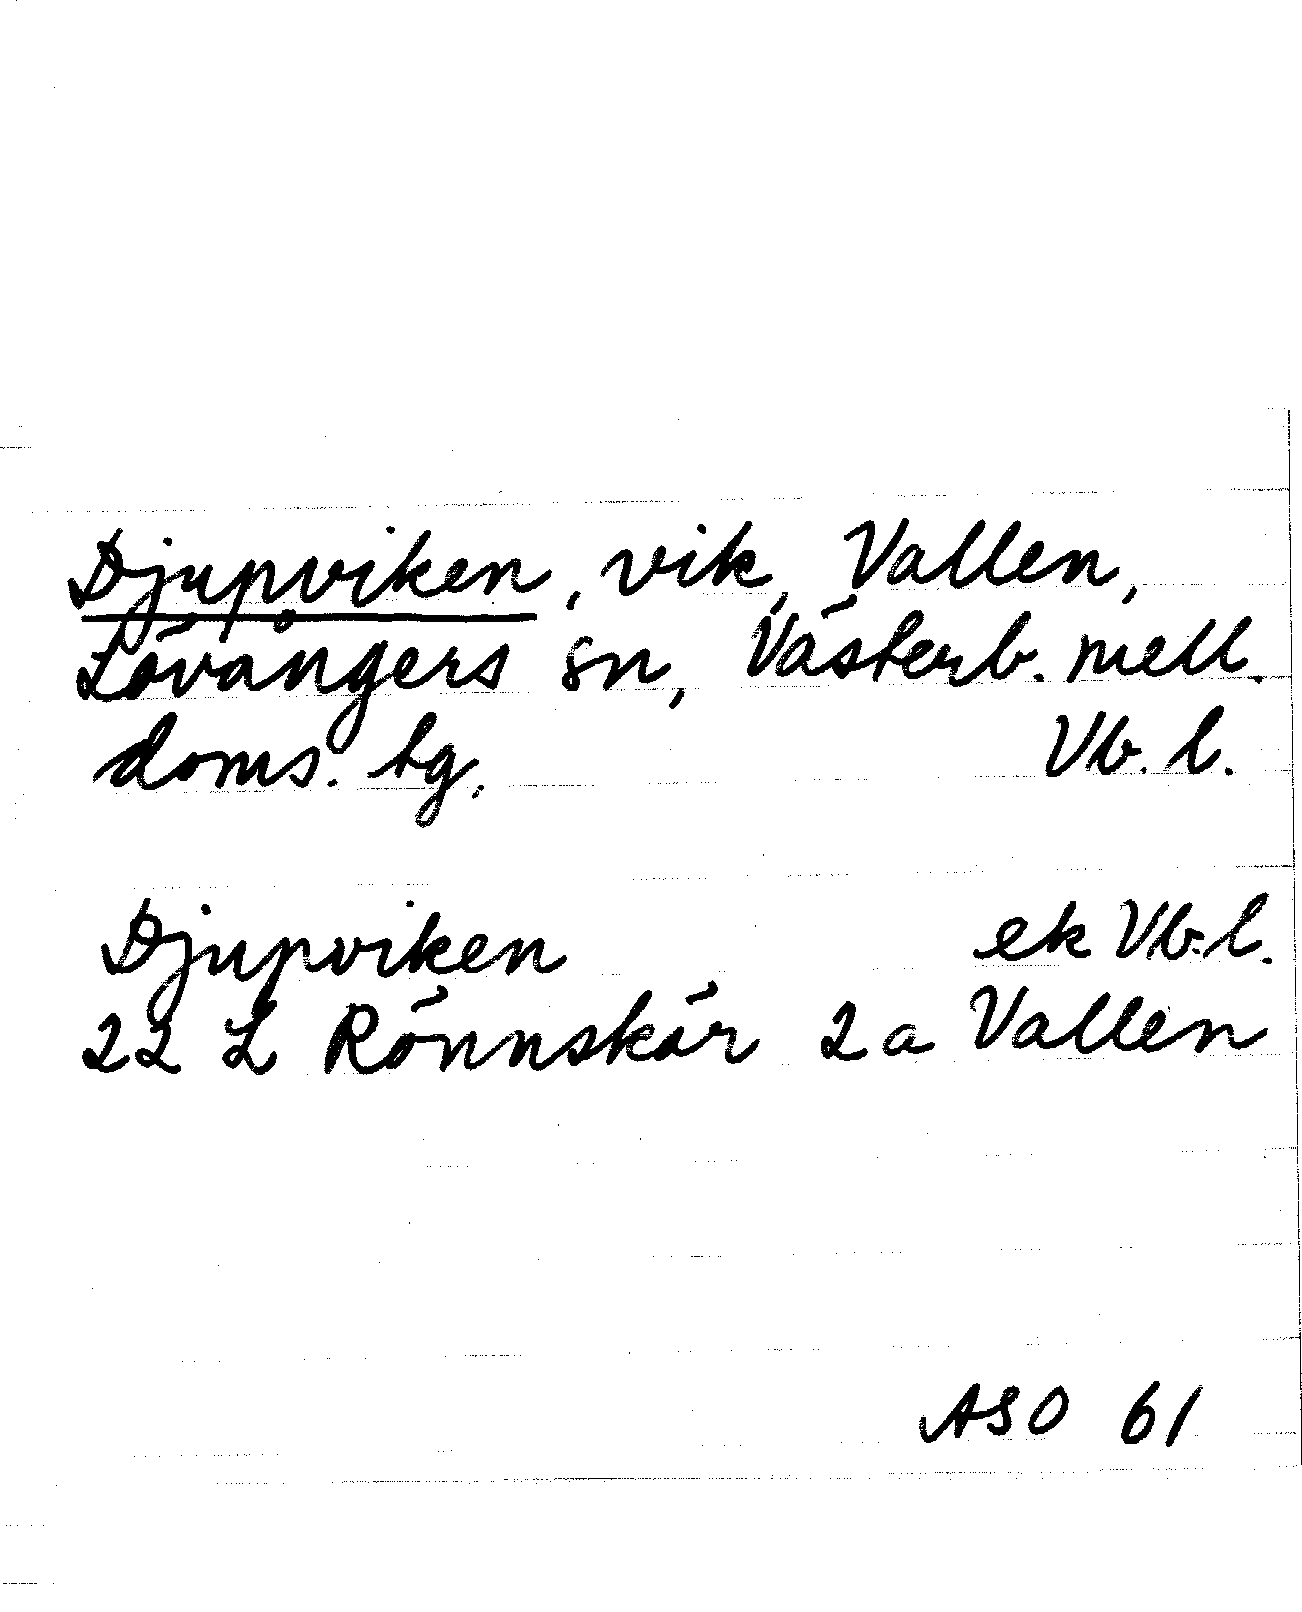 Djupviken, vik, Vallen,
Lövångers sn, Västerb. mell.
doms. tg. Vb. l.
Djupviken ek Vb. l.
22 L Rönnskär 2a Vallen
ASO 61